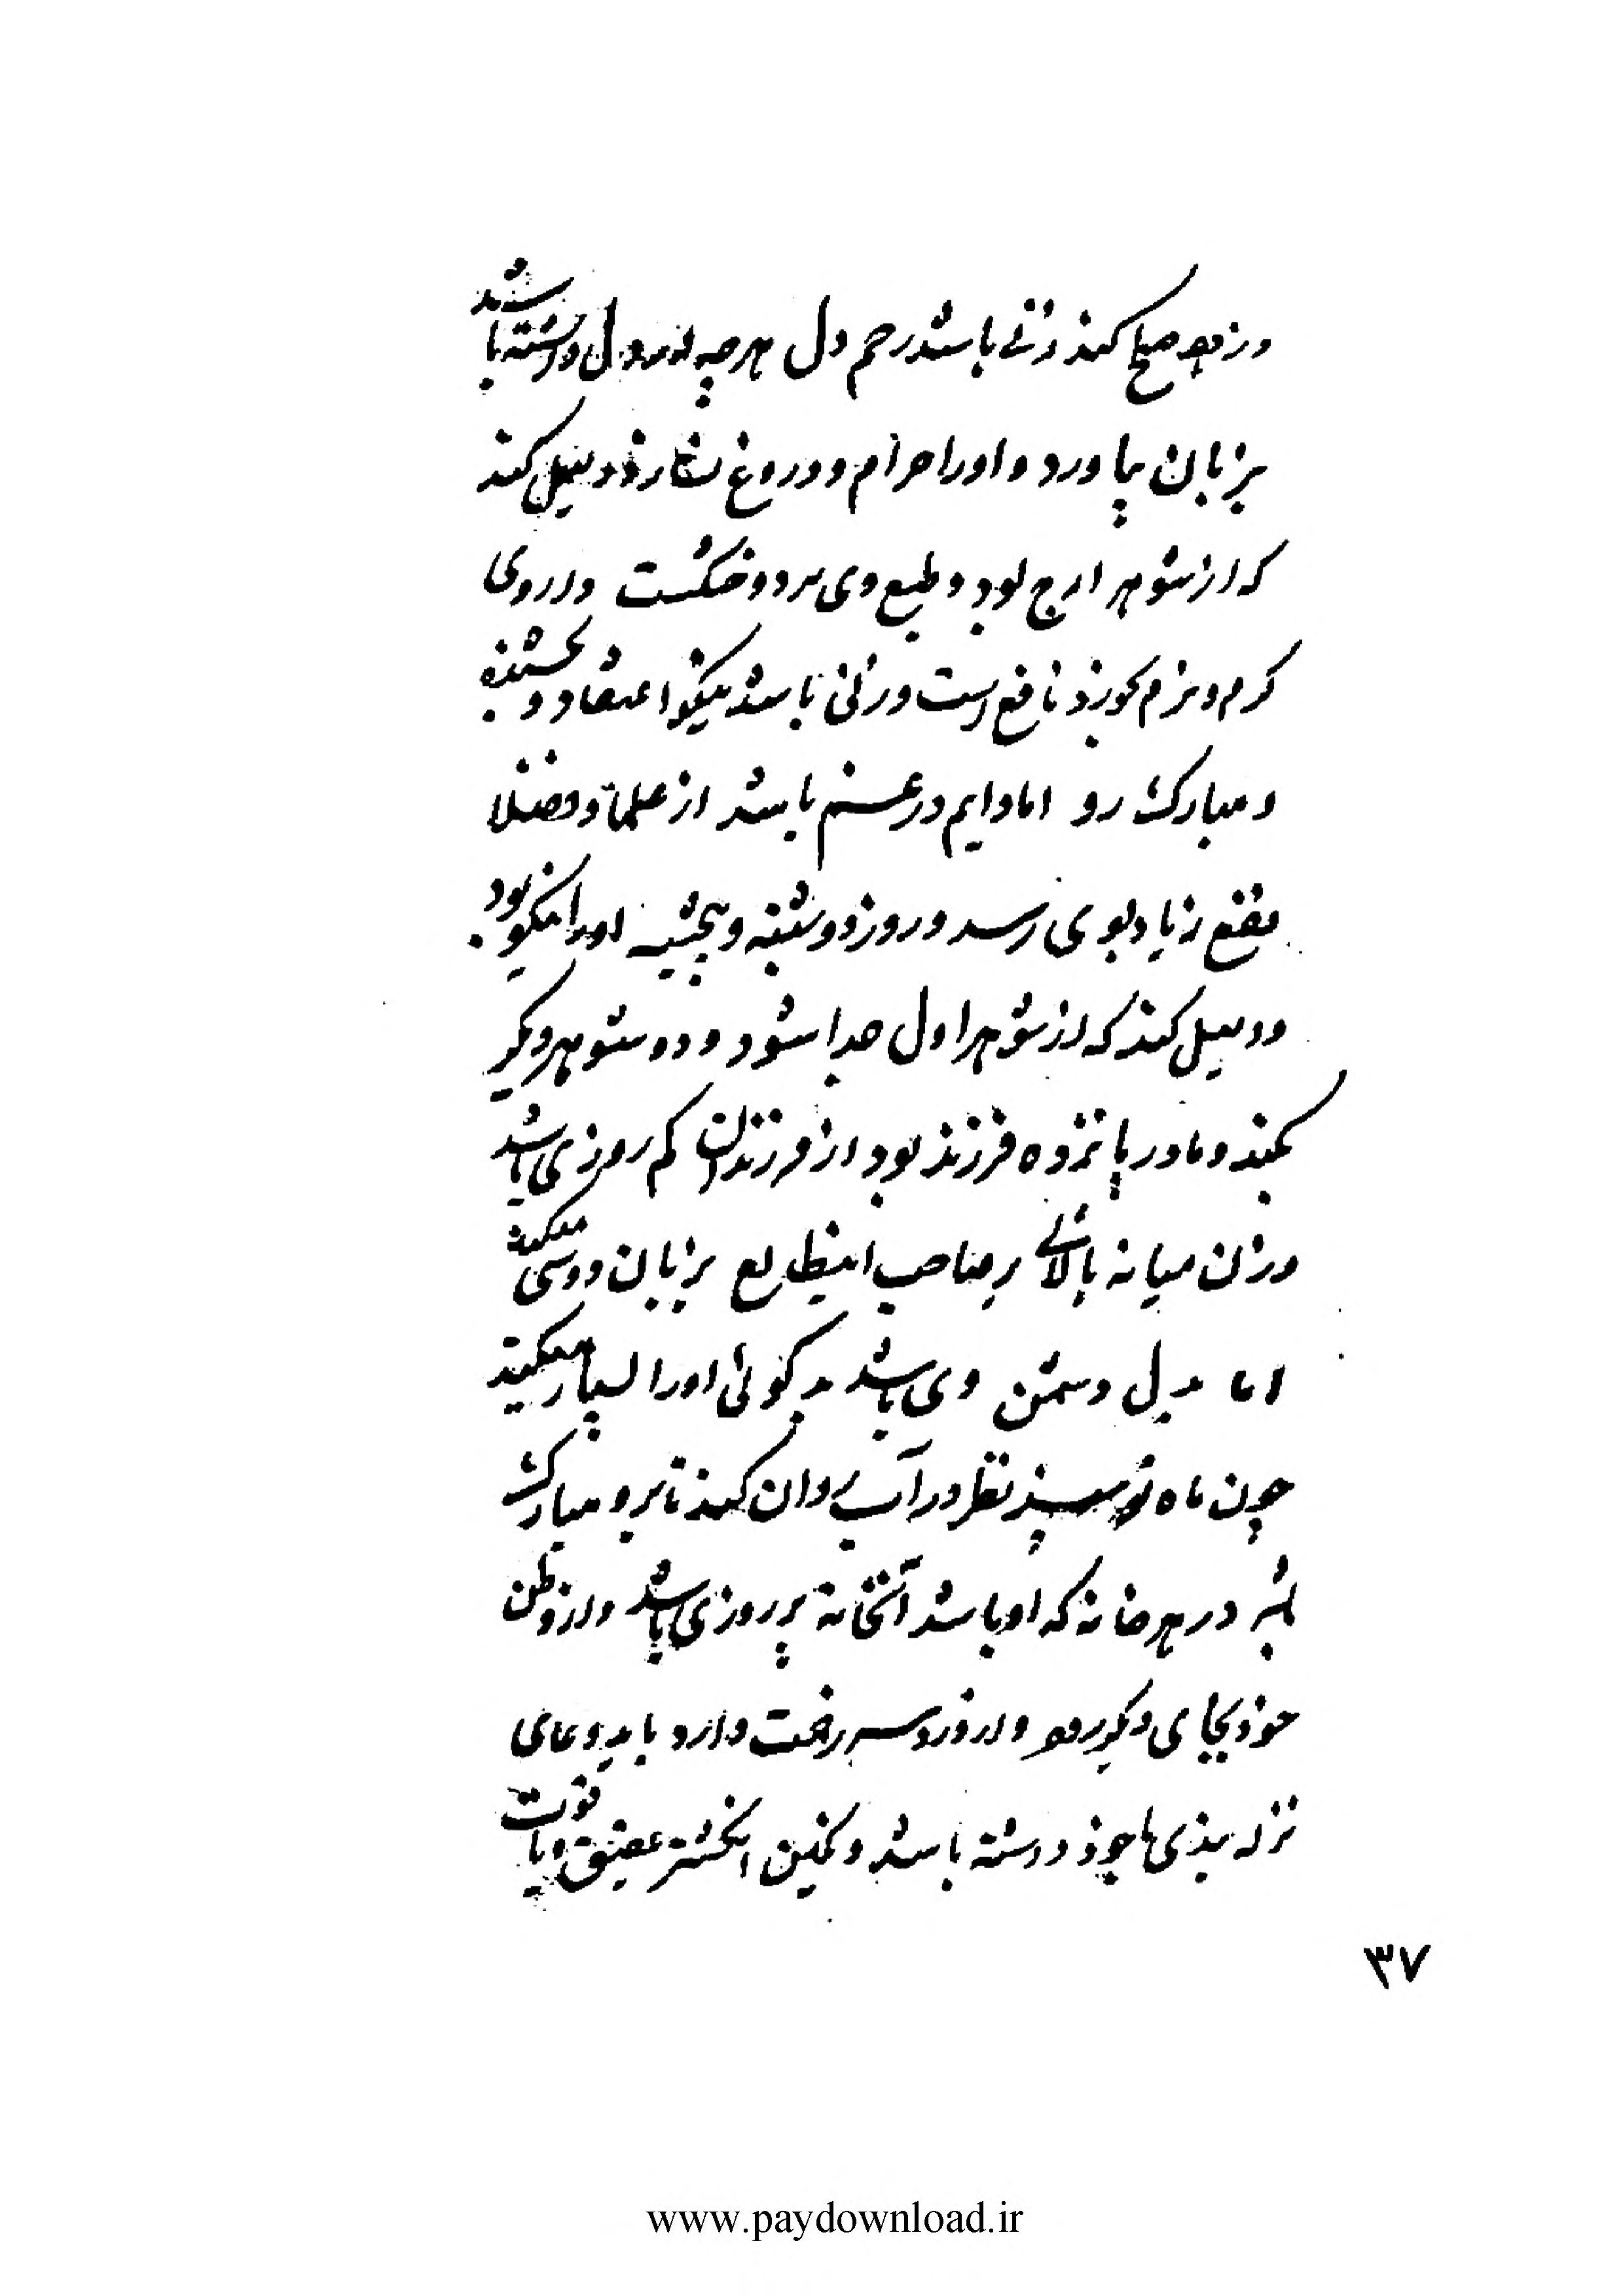 کند زنی باشد رحم دل هرچه در دل داشته باشد
بزبان بیاورد و اورا حرام و دروغ نسازد دلیل کند
که از شوهر اول بود و طبع وی سرد و خشکست داروی
کرم و نرم بخورد نافع است و زنی باشد نیکو اعتقاد و بخشنده
و مبارک رو اما دایم در غم باشد از علما و فضلا
نفع زیاد بوی رسد و روز دوشنبه و پنجشنبه اورا نیکو بود
و دلیل کند که از شوهر اول جدا شود و دو شوهر دیگر
بکند و مادر پانزده فرزند بود از فرزندان کم روزی باشد
و زن میانه بالائی بزبان دوستی میکند
اما بدل دشمن وی باشد بدگوئی اورا بسیار میکنند
چون ماه نو بیند نظر در آب روان کند تا برو مبارک
باشد در هر خانه که او باشد آنخانه پر روزی باشد و از وطن
خود بجای دیگر رود و درد سر سخت دارد باید دعای
نزله بندی با خود داشته باشد و نگین انگشتر عقیق و یاقوت
۳۷
www.paydownload.ir